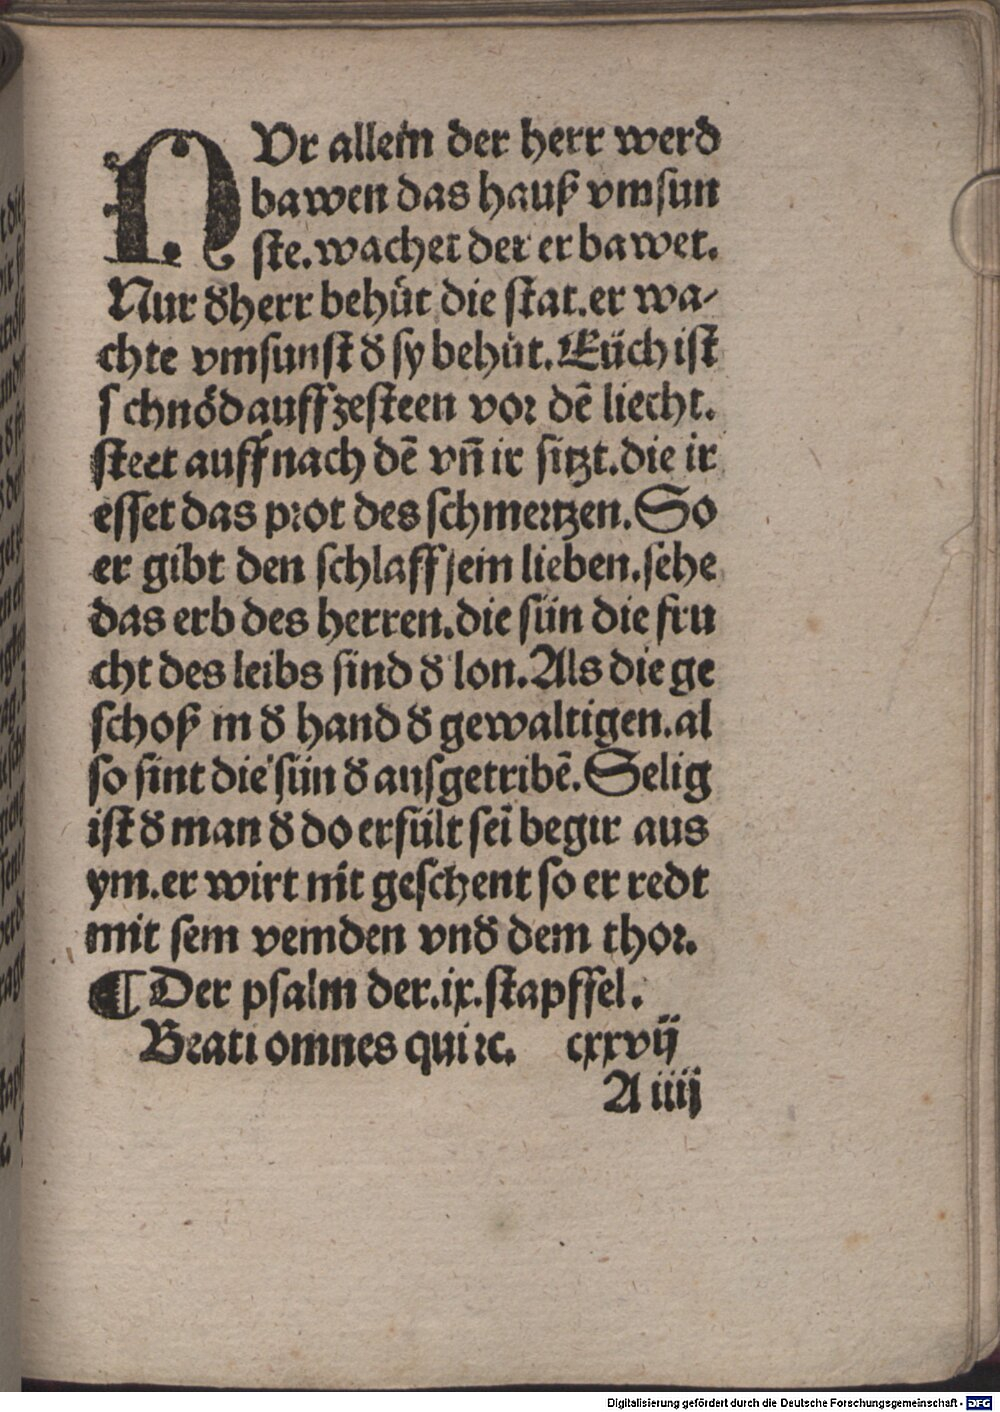 NVr allein der herr werd
bawen das hauß vmsun
ste. wachet der er bawet.
Nur đ herr behüt die stat. er wa⸗
chte vmsunst đ sy behüt. Eüch ist
schnöd auffzesteen vor dē liecht.
steet auff nach dē vñ ir sitzt. die ir
esset das prot des schmertzen. So
er gibt den schlaff sein lieben. sehe
das erb des herren. die sün die fru
cht des leibs sind đ lon. Als die ge
schoß in đ hand đ gewaltigen. al
so sint die sün đ ausgetribē. Selig
ist đ man đ do erfült sei̅ begir aus
ym. er wirt nit geschent so er redt
mit sein veinden vnđ dem thor.
¶ Der psalm der .ix. stapffel.
Beati omnes qui ⁊c. cxxvij
A iiij
Digitalisierung gefördert durch die Deutsche Forschungsgemeinschaft - DFG